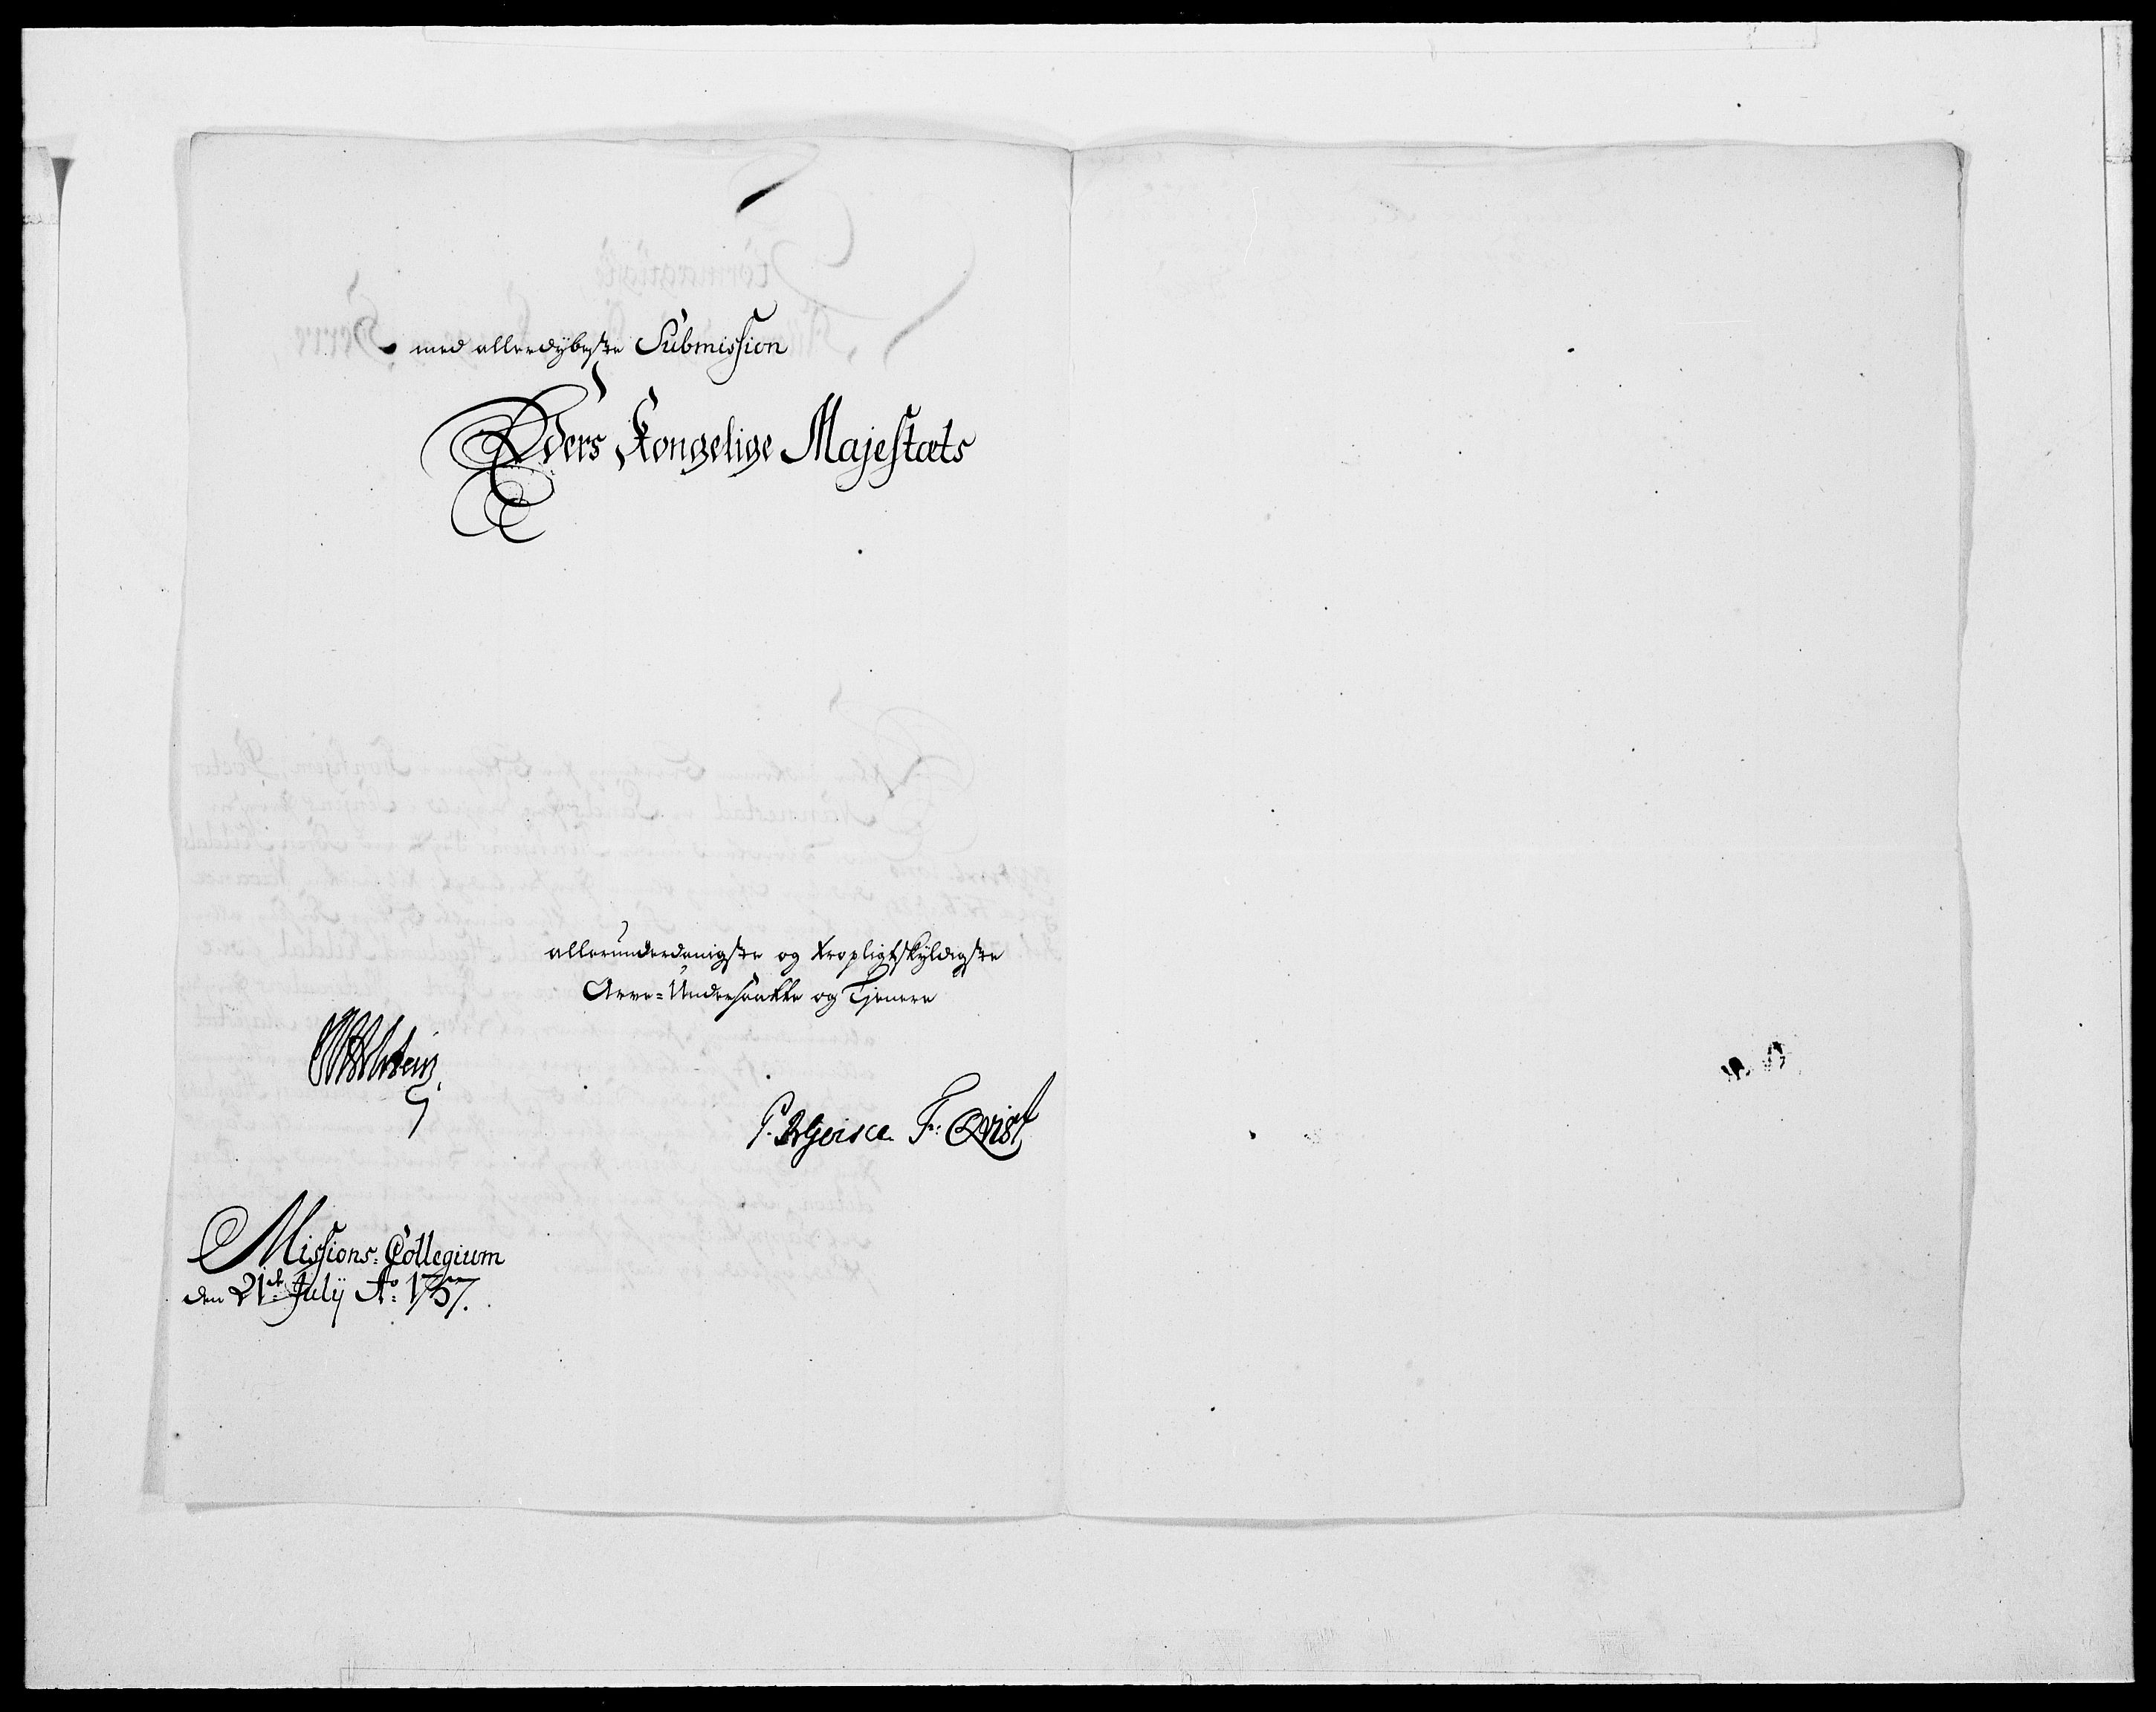 med allerdybeste Submission
Eders Kongelige Majestæts
allerunderdanigste og tropligtskyldigste
Arve-Undersaatte og Tjenere
Holstein
F: Qvist
Missions-Collegium
den 21de Julij Ao: 1757.